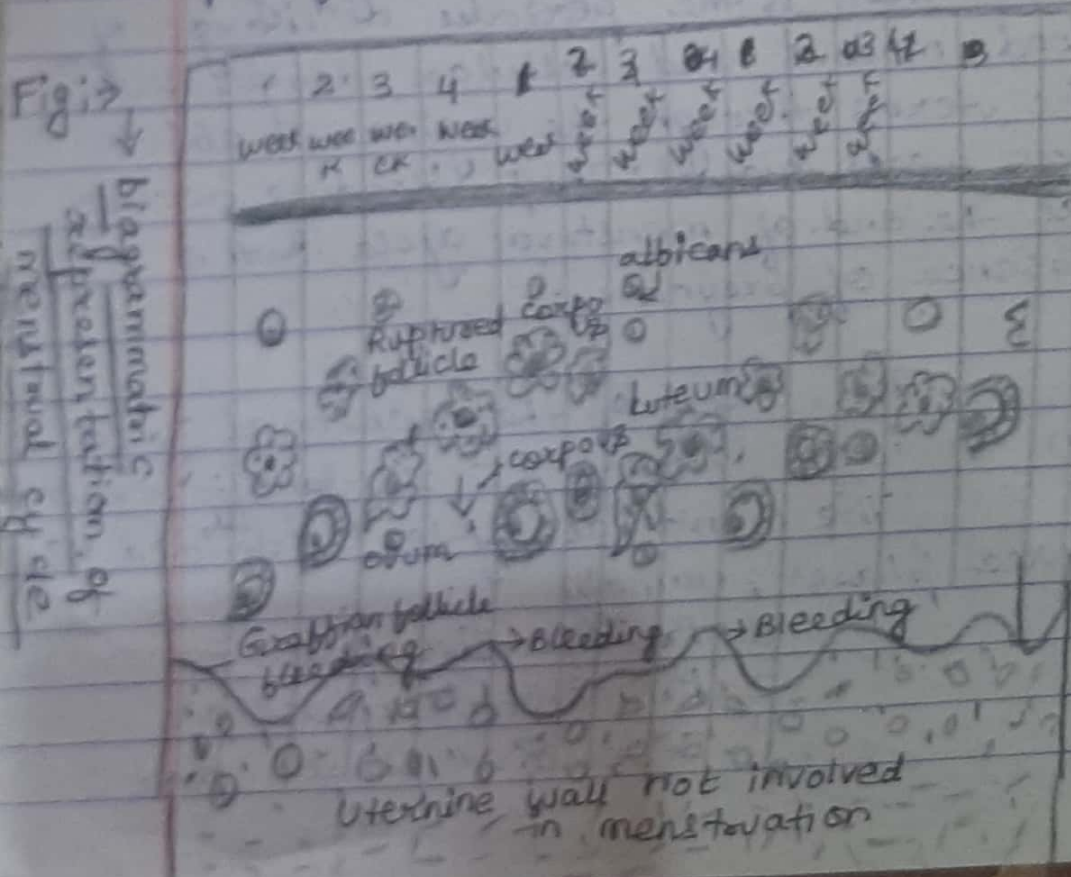 Fig:→
Diagrammatic
representation of
menstrual cycle
1 2 3 4 1 2 3 04 1 2 03 4
week wee wee week week week week week week week week
k ek
albicans
Ruptured corpo
follicle
luteum
corpora
ogum
Graffian follicle
bleeding → Bleeding → Bleeding
Uternine wall not involved
in menstruation